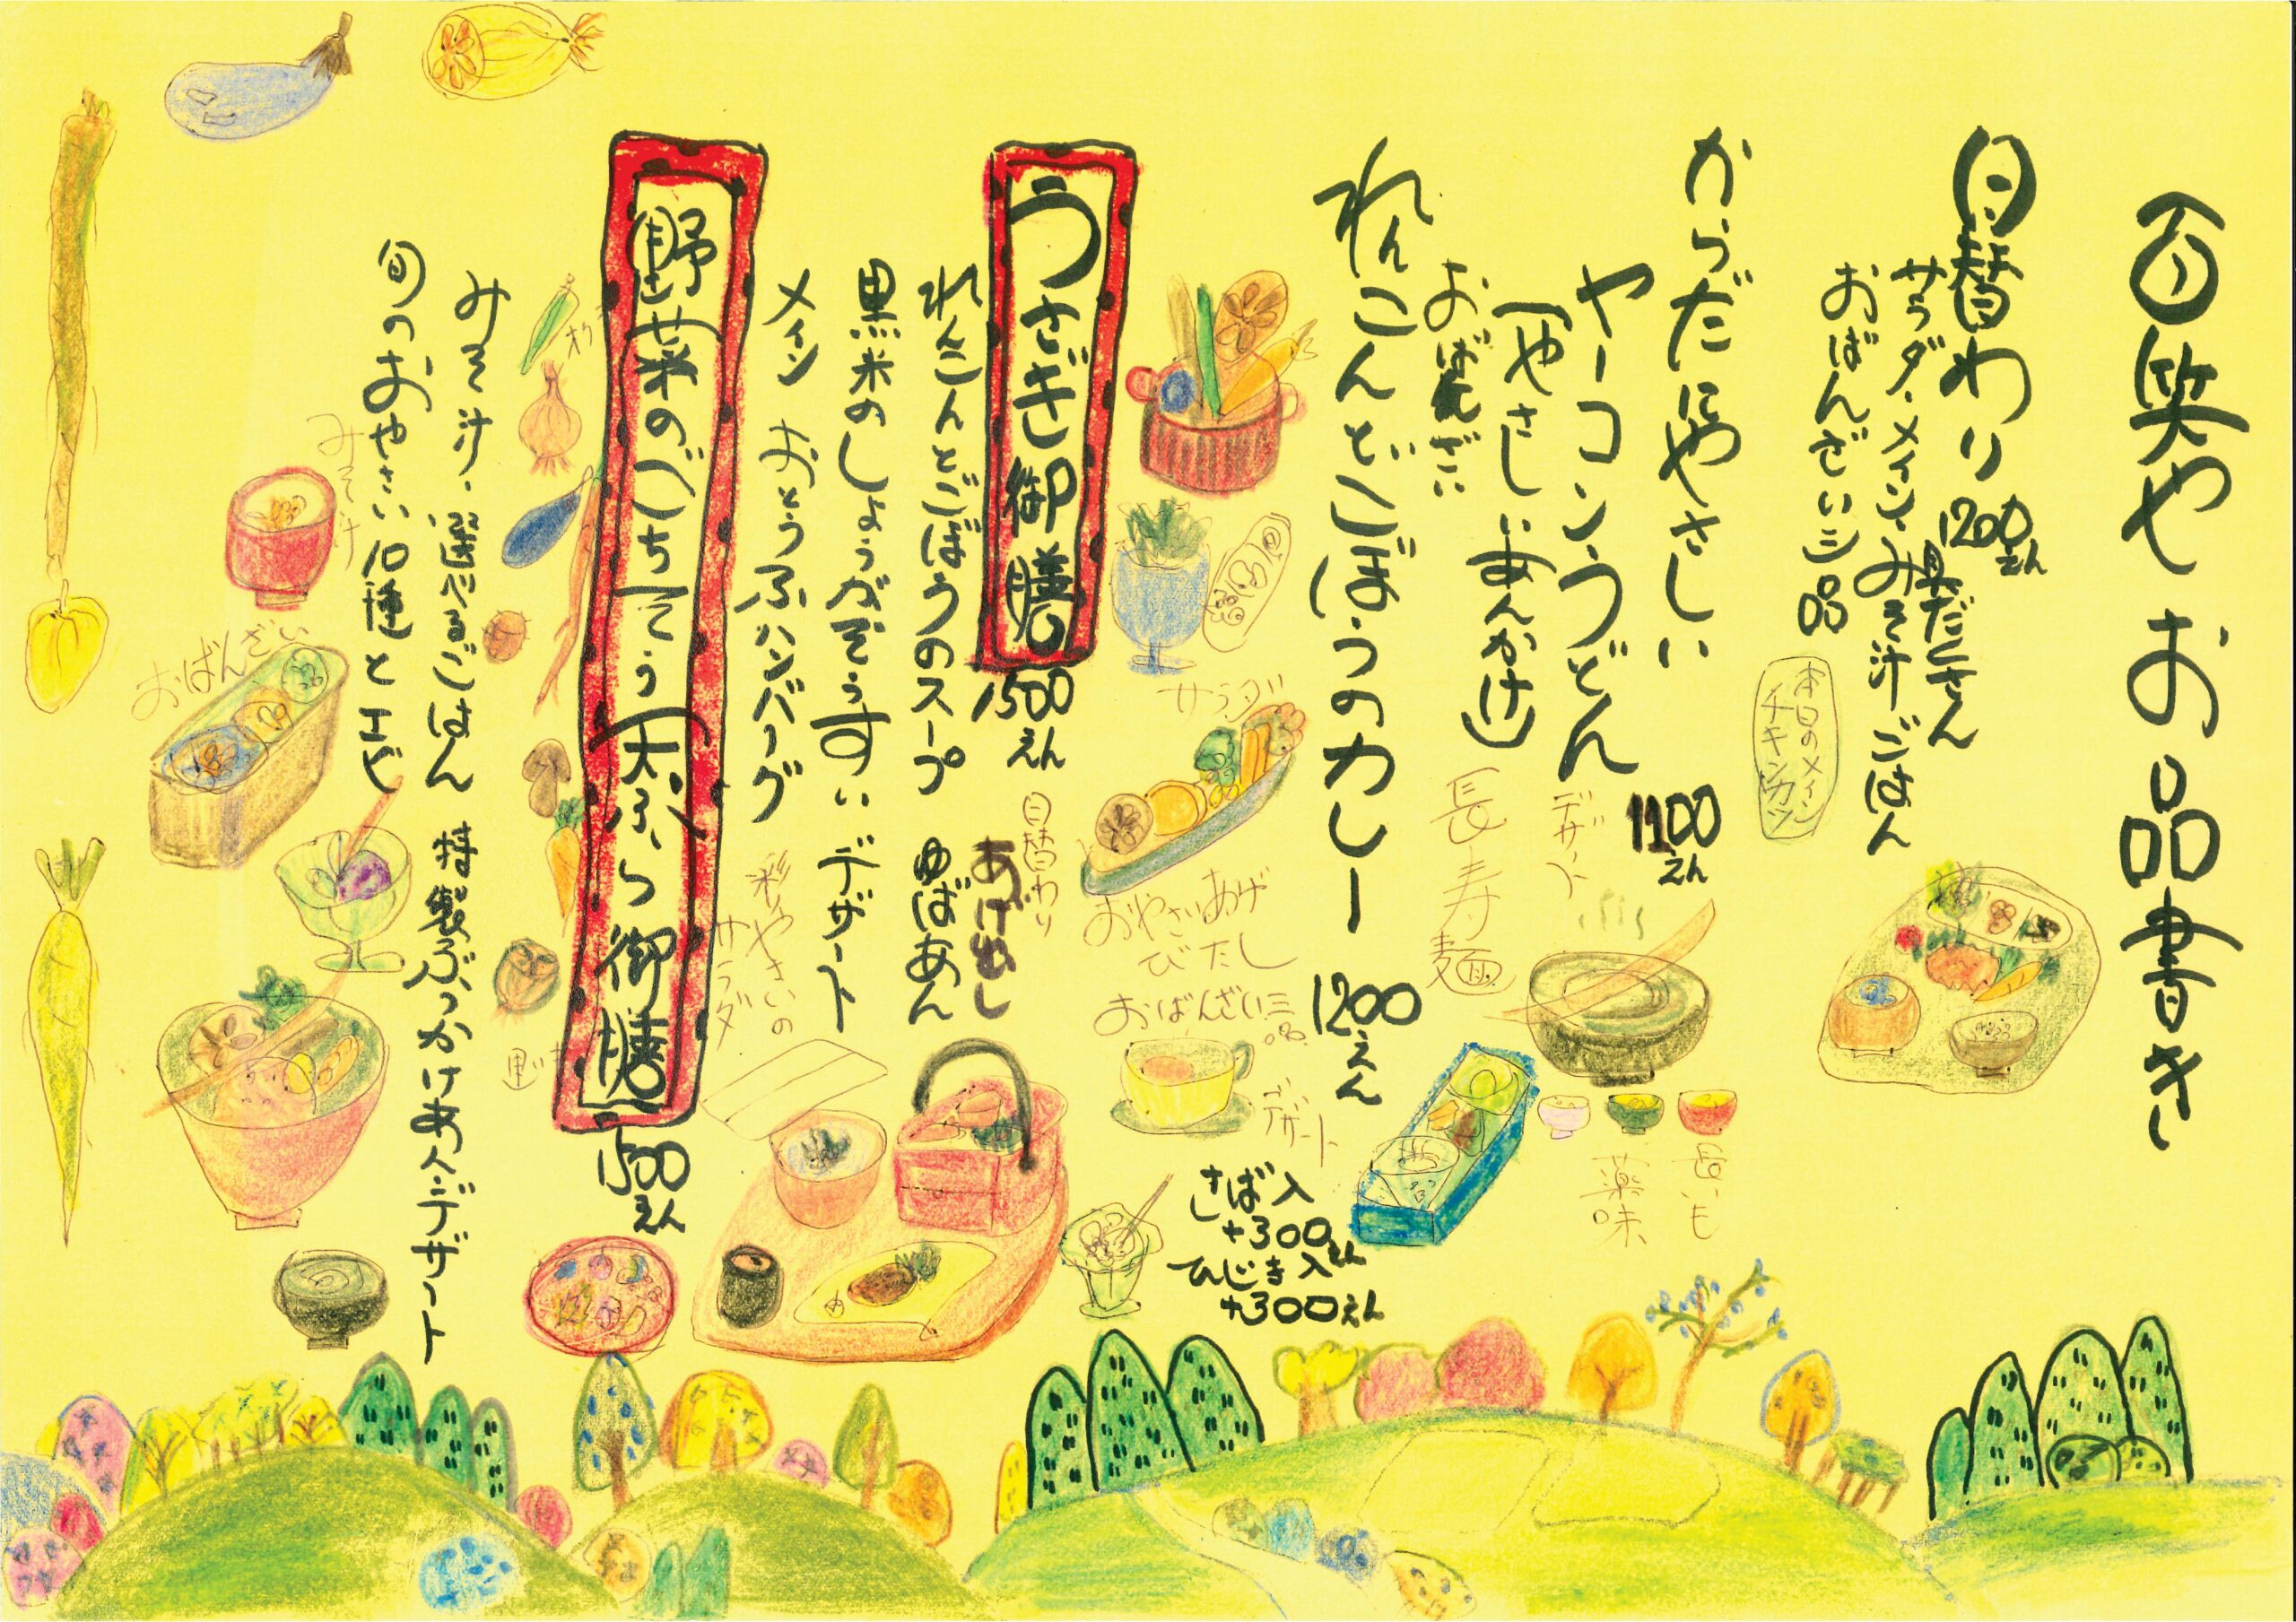 百笑や お品書き
日替わり 1200えん
具だくさん
サラダ・メイン・みそ汁 ごはん
おばんざい三品
本日のメイン
チキンカツ
からだにやさしい
ヤーコンうどん 1100えん
(やさしいあんかけ)
おばんざい
デザート
長寿麺
長いも
薬味
れんこんとごぼうのカレー 1200えん
さば入
+300えん
ひじき入
+300えん
サラダ
おやさいあげ
びたし
おばんざい三品
デザート
うさぎ御膳 1500えん
れんこんとごぼうのスープ
日替わり
あげ出し
ゆばあん
黒米のしょうがぞうすい デザート
メイン おとうふハンバーグ
彩やさいの
サラダ
野菜のごちそう天ぷら御膳 1500えん
みそ汁・黒米ごはん 特製ぶっかけあん デザート
旬のおやさい10種とエビ
みそ汁
おばんざい